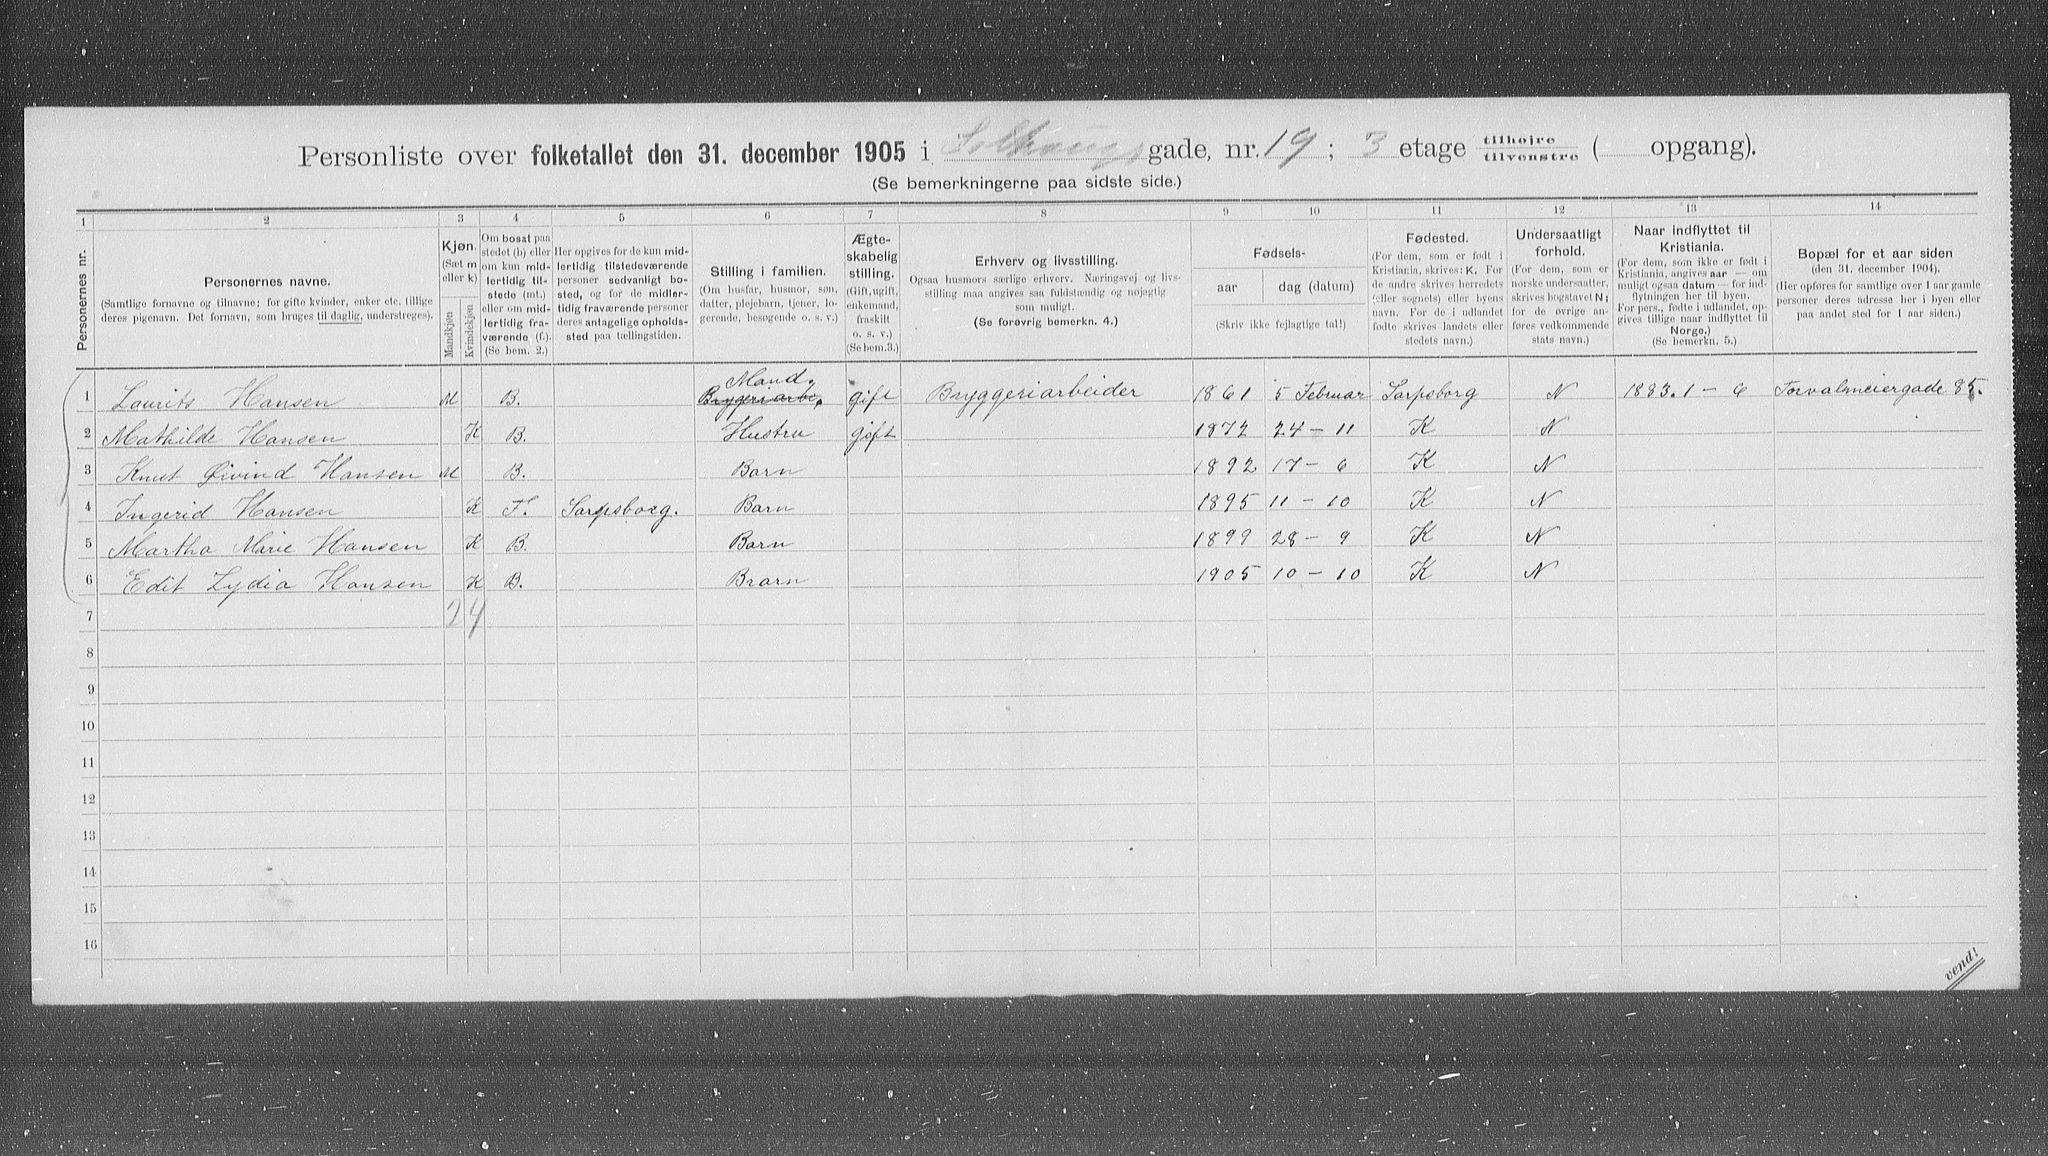 Personliste over folketallet den 31. december 1905 i gade, nr. 19 ; 3 etage tilhøjre tilvenstre ( opgang).
(Se bemerkningerne paa sidste side.)
1 2 3 4 5 6 7 8 9 10 11 12 13 14
Personernes nr.
Personernes navne.
(Samtlige fornavne og tilnavne; for gifte kvinder, enker etc. tillige
deres pigenavn. Det fornavn, som bruges til daglig, understreges).
Kjøn.
(Sæt m
eller k)
Mandkjøn
Kvindekjøn
Om bosat paa
stedet (b) eller
om kun mid-
lertidig til-
stede (mt.)
eller om mid-
lertidig fra-
værende (f.).
(Se bem. 2.)
Her opgives for de kun mid-
lertidig tilstedeværende
personer sedvanligt bo-
sted, og for de midler-
tidig fraværende personer
deres antagelige opholds-
sted paa tællingstiden.
Stilling i familien.
(Om husfar, husmor, søn,
datter, plejebarn, tjener, lo-
gerende, besøgende o. s. v.)
Ægte-
skabelig
stilling.
(Gift, ugift,
enkemand,
fraskilt
o. s. v.)
(Se bem.3.)
Erhverv og livsstilling.
Ogsaa husmors særlige erhverv. Næringsvej og livs-
stilling maa angives saa fuldstændig og nøjagtig
som muligt.
(Se forøvrig bemerkn. 4.)
Fødsels-
aar dag (datum)
(Skriv ikke fejlagtige tal!)
Fødested.
(For dem, som er født i
Kristiania, skrives: K. For
de andre skrives herredets
(eller sognets) eller byens
navn. For de i udlandet
fødte skrives landets eller
stedets navn.)
Undersaatligt
forhold.
(For dem, som er
norske undersaatter,
skrives bogstavet N;
for de øvrige an-
føres vedkommende
stats navn.)
Naar indflyttet til
Kristiania.
(For dem, som ikke er født i
Kristiania, angives aar — om
muligt ogsaa datum — for ind-
flytningen her til byen.
For pers., fødte i udlandet, op-
gives tillige naar indflyttet til
Norge.)
(Se bemerkn. 5.)
Bopæl for et aar siden
(den 31. december 1904).
(Her opføres for samtlige over 1 aar gamle
personer deres adresse her i byen eller
paa andet sted for 1 aar siden.)
Mand.
1 Laurits Hansen M B. Bryggeriarbe. gift Bryggeriarbeider 1861 5 Februar Sarpsborg N 1883. 1 - 6 Torvalmeiergade 85.
2 Mathilde Hansen K B. Hustru gift 1872 24 - 11 K N
3 Knut Øivind Hansen M B. Barn 1892 17 - 6 K N
4 Ingerid Hansen K F. Sarpsborg. Barn 1895 11 - 10 K N
5 Martha Marie Hansen K B. Barn 1899 28 - 9 K N
6 Edit Lydia Hansen K B. Brarn 1905 10 - 10 K N
7 2 4
8
9
10
11
12
13
14
15
16
vend!